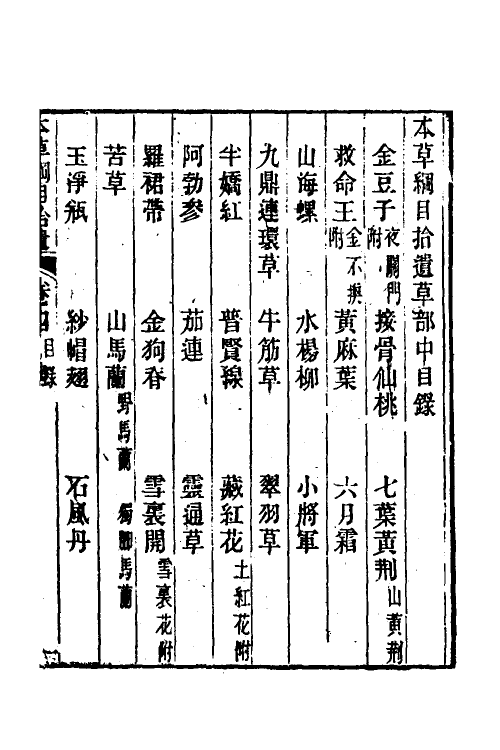 本草綱目拾遺草部中目錄
金豆子 夜關門附 接骨仙桃 七葉黃荆 山黃荆
救命王 金不換附 黃麻葉 六月霜
山海螺 水楊柳 小將軍
九鼎連環草 牛筋草 翠羽草
半嬌紅 普賢線 藏紅花 土紅花附
阿勃參 茄連 靈通草
羅裙帶 金狗脊 雪裏開 雪裏花附
苦草 山馬蘭 野馬蘭 獨脚馬蘭
玉淨瓶 紗帽翅 石風丹
本草綱目拾遺 卷四目錄